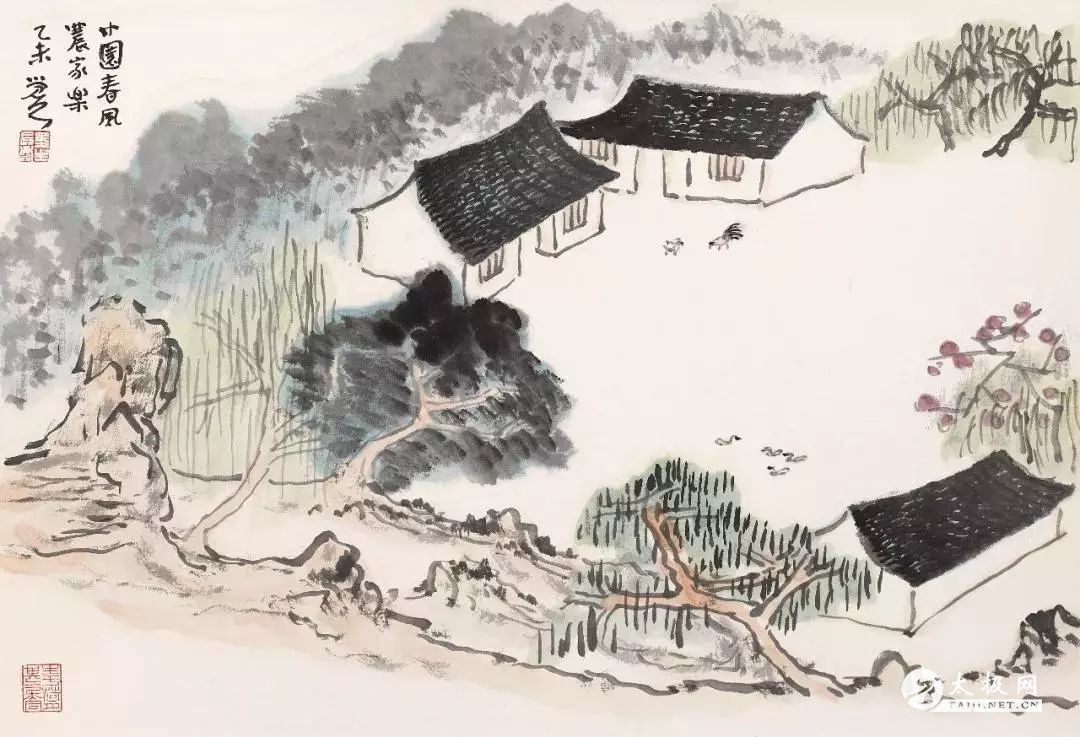 小園春風
農家樂
乙未
太极网
TAIJI.NET.CN